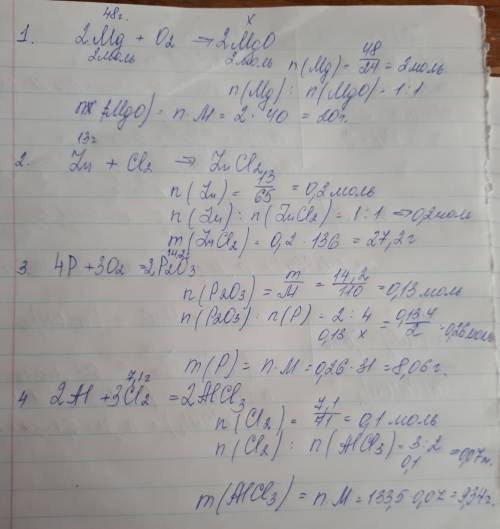 48г. x
1. 2Mg + O2 → 2MgO
2моль 2моль n(Mg) = 48/24 = 2моль
n(Mg) : n(MgO) = 1:1
m(MgO) = n·M = 2·40 = 20г.
13г
2. Zn + Cl2 → ZnCl2
n(Zn) = 13/65 = 0,2моль
n(Zn) : n(ZnCl2) = 1:1 → 0,2моль
m(ZnCl2) = 0,2·136 = 27,2г
14,2г
3 4P + 3O2 = 2P2O3
n(P2O3) = m/M = 14,2/110 = 0,13 моль
n(P2O3) : n(P) = 2 : 4
0,13 x = 0,13·4/2 = 0,26моль
m(P) = n·M = 0,26·31 = 8,06г.
7,1г
4 2Al + 3Cl2 = 2AlCl3
n(Cl2) = 7,1/71 = 0,1 моль
n(Cl2) : n(AlCl3) = 3:2 = 0,07м.
0,1
m(AlCl3) = n·M = 133,5·0,07 = 9,34г.